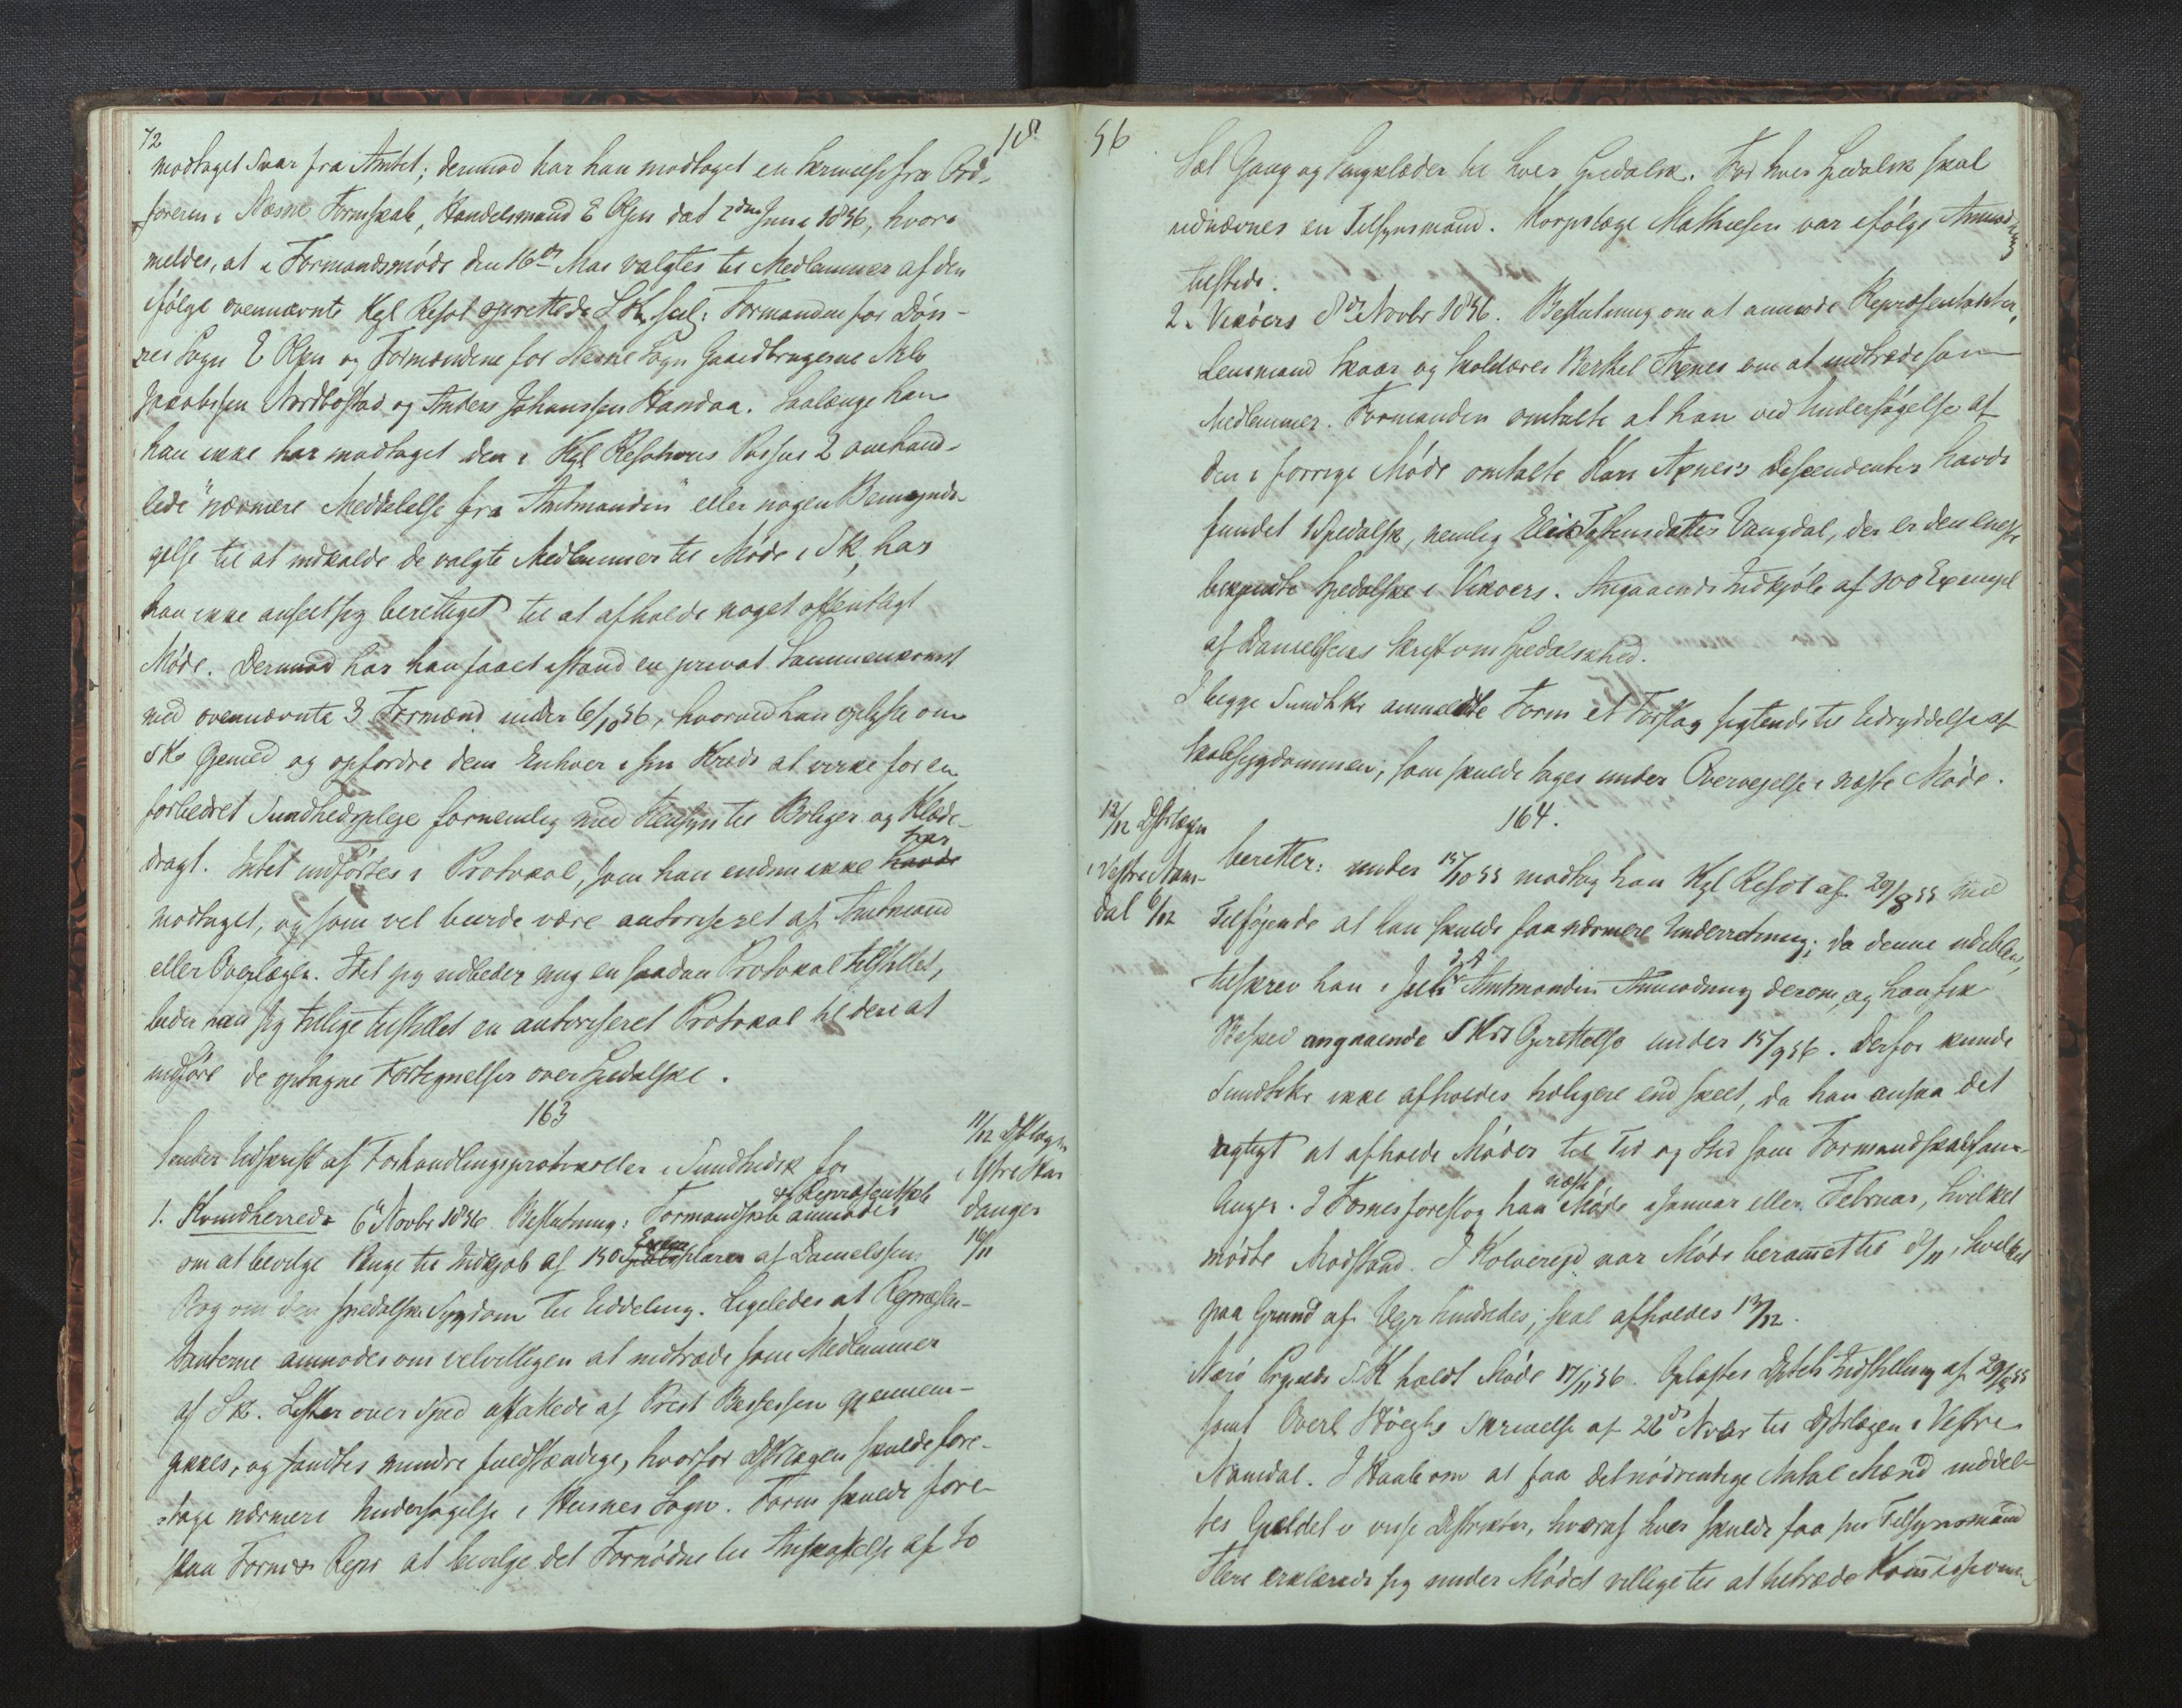 72
18
modtaget Svar fra Amtet; derimod har han modtaget en Skrivelse fra Ord-
føreren i Næsne Formskab, Handelsmand E Olsen dat 2den Juni 1856, hvori
meldes, at i Formandsmøde den 16de Mai valgtes til Medlemmer af den
ifølge ovennævnte Kgl Resol oprettede SK, sc: Formanden for Døn-
nes Sogn E Olsen og Formændene for Næsne Sogn Gaardbrugerne Nils
Jakobssen Nordbostad og Anders Johanssen Handaa. Saalænge han
han ikke har modtaget den i Kgl Resolutions Passus 2 omhand-
lede "nærmere Meddelelse fra Amtmanden" eller nogen Bemyndi-
gelse til at indkalde de valgte Medlemmer til Møde i SK, har
han ikke anseet sig berettiget til at afholde noget offentligt
Møde. Derimod har han faaet istand en privat Sammenkomst
med ovennævnte 3 Formænd under 6/10 56, hvorved han oplyste om
SKs Øiemed og opfordre dem Enhver i sin Kreds at virke for en
forbedret Sundhedspleje fornemlig med Hensyn til Boliger og Klæde-
dragt. Intet indførtes i Protokol, som han endnu ikke havde har
modtaget, og som vel burde være autoriseret af Amtmand
eller Overlægen. Idet jeg udbeder mig en saadan Protokol tilstillet,
beder man sig tillige tilstillet en autoriseret Protokol til deri at
indføre de optagne Fortegnelser over Spedalske.
163
11/12 DstrLægen
i Østre Har
danger
16/11
Sender Udskrift af Forhandlingsprotokoller i Sundhedsk for
1. Kvindherred 6te Novbr 1856. Beslutning: Formandskab og Repræsentskb anmodes
om at bevilge Penge til Indkjøb af 150 Exemplarer af Danielssens
Bog om den spedalske Sygdom til Uddeling. Ligeledes at Repræsen-
tanterne anmodes om velvilligen at indtræde som Medlemmer
af Sk. Lister over Sped affattede af Prest gjennem-
gikkes, og fandtes mindre fuldstændige, hvorfor DstrLægen skulde fore-
tage nærmere Undersøgelse i Husnes Sogn. Form skulde fore-
slaa Form og Repr at bevilge det Fornødne til Anskaffelse af to
56
Sæt Gang og Sengklæder til hver Spedalsk. For hver Spedalsk skal
udnævnes en Tilsynsmand. Korpslæge Mathiesen var ifølge Anmodning
tilstede.
2. Vikøers 8de Novbr 1856. Beslutning om at anmode Repræsentanter,
Lensmand Skaar og Skolelærer Berthel Axnes om at indtræde som
Medlemmer. Formanden omtalte at han ved Undersøgelse af
den i forrige Møde omtalte Kari Axnes's Descendenter havde
fundet 1 Spedalsk, nemlig Vangdal, der er den eneste
bekjendte Spedalske i Vikøers. Angaaende Indkjøb af 100 Exempl
af Danielssens Skrift om Spedalskhed.
I begge SundhKr anmeldte Form et Forslag sigtende til Udryddelse af
Skabsygdommen, som skulde tages under Overvejelse i næste Møde.
164.
12/12 Dstrlægen
i Vestre Nam-
dal 6/12
beretter: under 15/10 55 modtog han Kgl Resol af 29/8 55 med
Tilføjende at han skulde faa nærmere Underretning; da denne udeblev,
tilskrev han i Juli 56 Amtmanden Anmodning derom, og han fik
Besked angaaende SKrs Oprettelse under 15/9 56. Derfor kunde
SundhKr ikke afholdes tidligere end skeet, da han ansaa det
rigtigt at afholde Møder til Tid og Sted som Formandskabsam-
linger. I Fosnes foreslog han næste Møde i Januar eller Februar, hvilket
mødte Modstand. I Kolvereid var Møde berammet til 8/11, hvilket
paa Grund af Vejr hindredes; skal afholdes 13/12.
Nærø Prgjelds SK holdt Møde 17/11 56. Oplæstes Dptets Indstilling af 29/8 55
samt Overl Høeghs Skrivelse af 22de Novbr til Dstrlægen i Vestre
Namdal. I Haab om at faa det nødvendige Antal Mænd inddel-
tes Gjeldet i visse Distrikter, hvoraf hver skulde faa sin Tilsynsmand
Flere erklærede sig under Mødet villige til at tiltræde Kommissionen